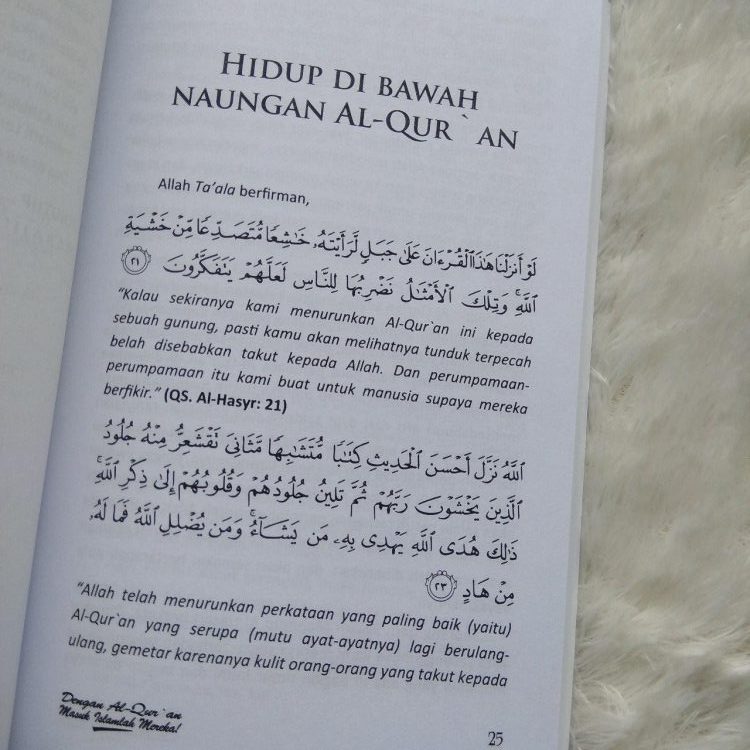 HIDUP DI BAWAH
NAUNGAN AL-QUR`AN
Allah Ta'ala berfirman,
لَوْ أَنزَلْنَا هَٰذَا الْقُرْءَانَ عَلَىٰ جَبَلٍ لَّرَأَيْتَهُۥ خَٰشِعًا مُّتَصَدِّعًا مِّنْ خَشْيَةِ
اللَّهِ ۚ وَتِلْكَ الْأَمْثَٰلُ نَضْرِبُهَا لِلنَّاسِ لَعَلَّهُمْ يَتَفَكَّرُونَ ٢١
“Kalau sekiranya kami menurunkan Al-Qur`an ini kepada
sebuah gunung, pasti kamu akan melihatnya tunduk terpecah
belah disebabkan takut kepada Allah. Dan perumpamaan-
perumpamaan itu kami buat untuk manusia supaya mereka
berfikir.” (QS. Al-Hasyr: 21)
اللَّهُ نَزَّلَ أَحْسَنَ الْحَدِيثِ كِتَٰبًا مُّتَشَٰبِهًا مَّثَانِىَ تَقْشَعِرُّ مِنْهُ جُلُودُ
الَّذِينَ يَخْشَوْنَ رَبَّهُمْ ثُمَّ تَلِينُ جُلُودُهُمْ وَقُلُوبُهُمْ إِلَىٰ ذِكْرِ اللَّهِ ۚ
ذَٰلِكَ هُدَى اللَّهِ يَهْدِى بِهِۦ مَن يَشَآءُ ۚ وَمَن يُضْلِلِ اللَّهُ فَمَا لَهُۥ
مِنْ هَادٍ ٢٣
“Allah telah menurunkan perkataan yang paling baik (yaitu)
Al-Qur`an yang serupa (mutu ayat-ayatnya) lagi berulang-
ulang, gemetar karenanya kulit orang-orang yang takut kepada
Dengan Al-Qur`an
Masuk Islamlah Mereka!
25